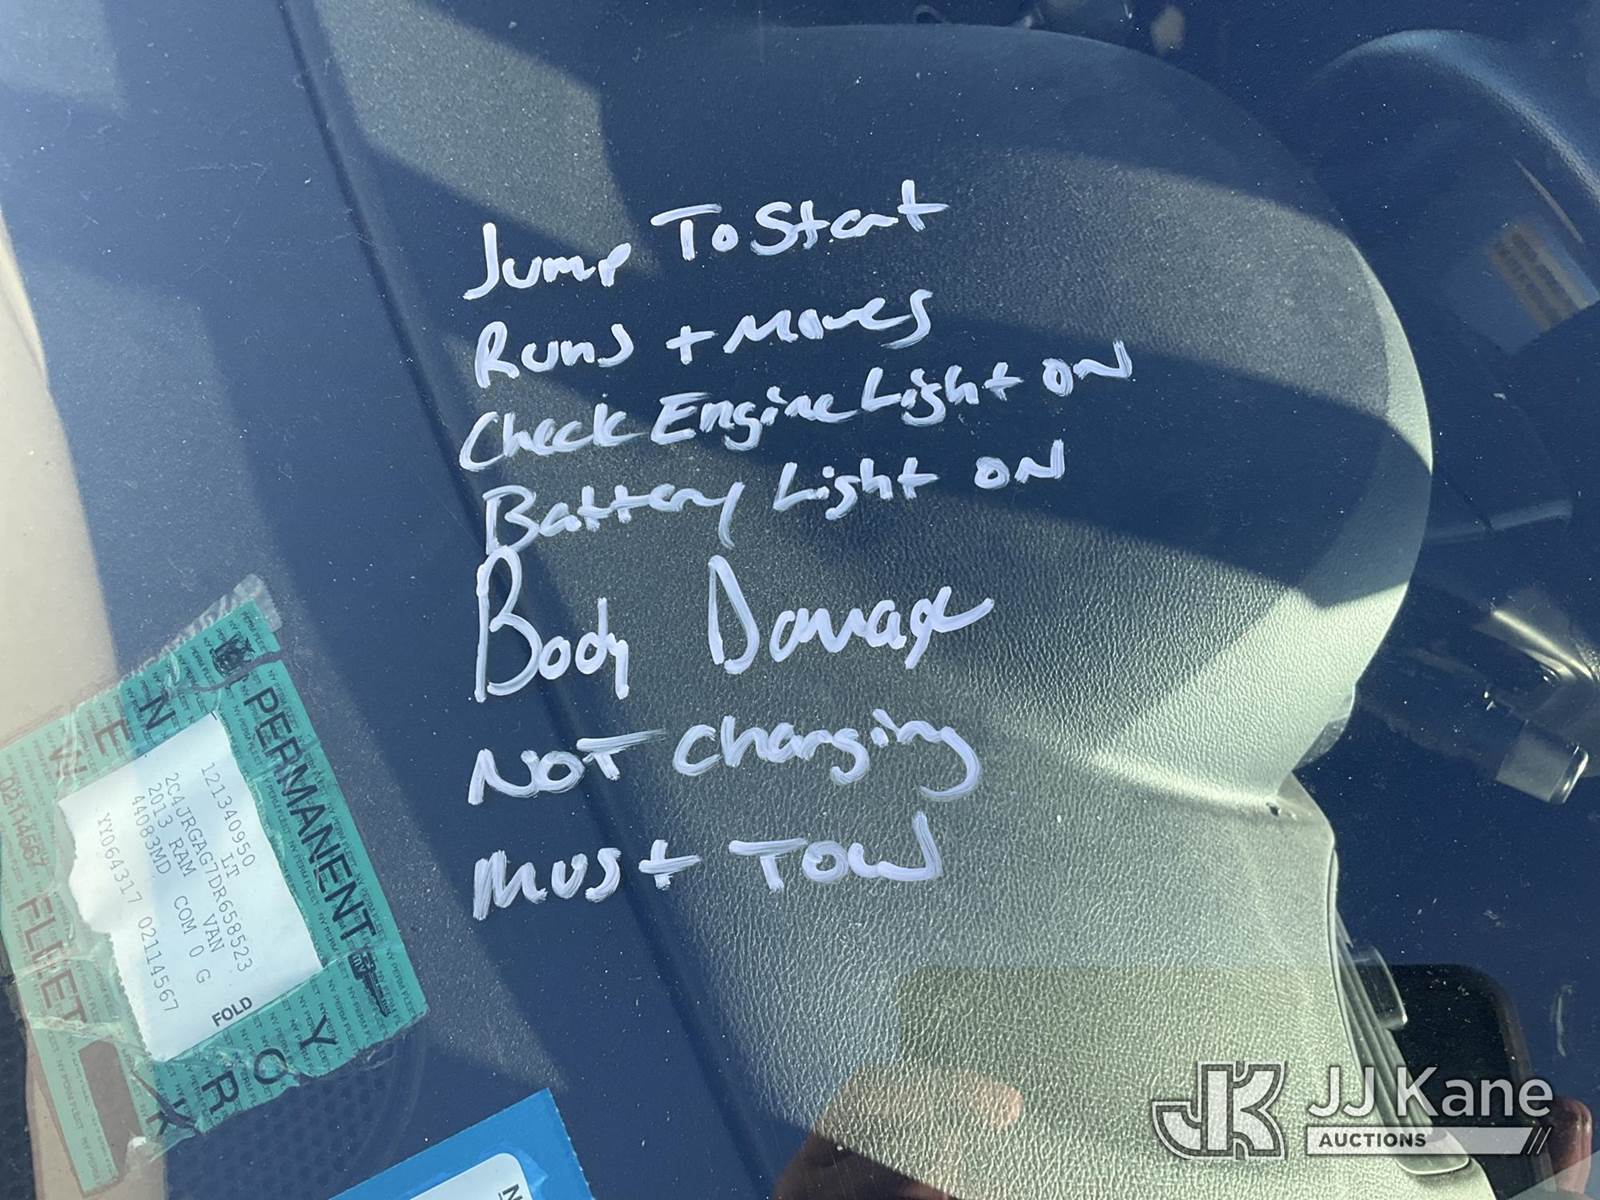 Jump To Start
Runs + Moves
Check Engine Light ON
Battery Light ON
Body Damage
NOT Charging
Must TOW
NEW YORK
PERMANENT
FLEET
02114567
121340950
LT
2C4JRGAG7DR658523
2013 RAM VAN
44083MD COM 0 G
YY064317 02114567
FOLD
N
JK
JJ Kane
AUCTIONS